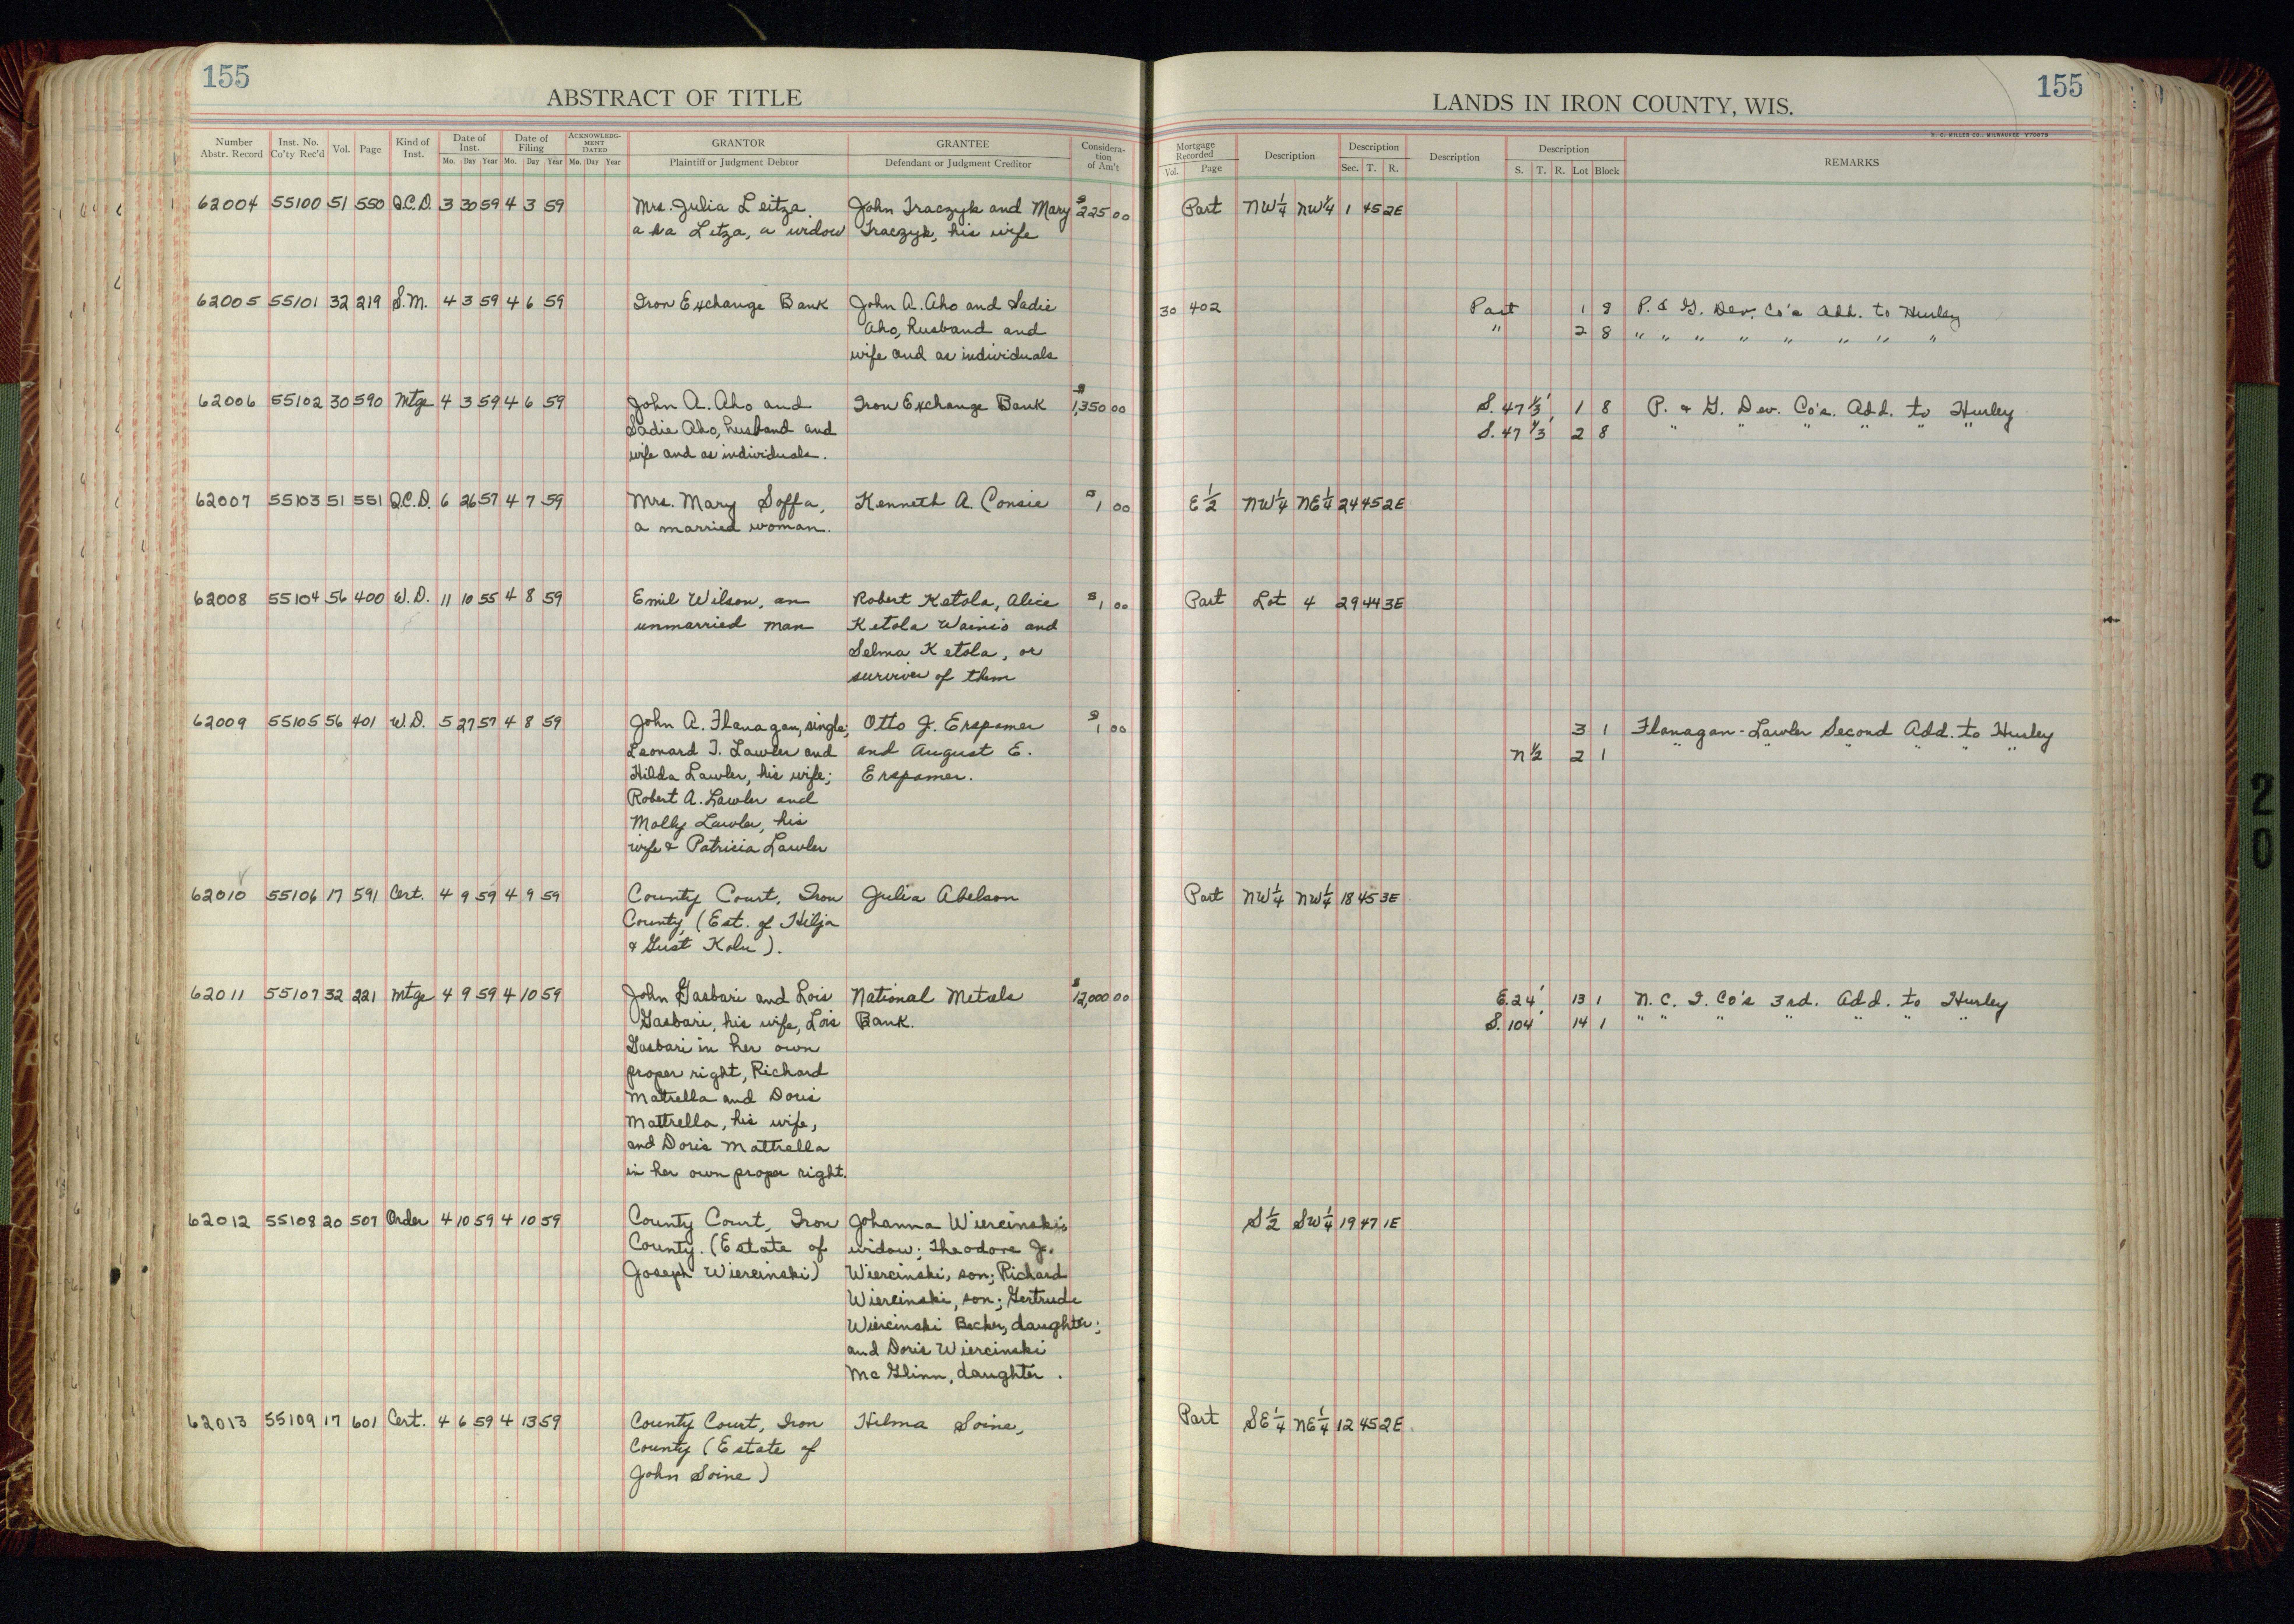 155
ABSTRACT OF TITLE
Number Abstr. Record
Inst. No. Co'ty Rec'd
Vol.
Page
Kind of Inst.
Date of Inst.
Mo. Day Year
Date of Filing
Mo. Day Year
ACKNOWLEDGMENT DATED
Mo. Day Year
GRANTOR
Plaintiff or Judgment Debtor
GRANTEE
Defendant or Judgment Creditor
Consideration of Am't
62004 55100 51 550 Q.C.D. 3 30 59 4 3 59 Mrs. Julia Leitza John Traczyk and Mary $225 00
a ka Letza, a widow Traczyk, his wife
62005 55101 32 219 S.M. 4 3 59 4 6 59 Iron Exchange Bank John A. Aho and Sadie
Aho, husband and
wife and as individuals
62006 55102 30 590 Mtge 4 3 59 4 6 59 John A. Aho and Iron Exchange Bank $1,350 00
Sadie Aho, husband and
wife and as individuals.
62007 55103 51 551 Q.C.D. 6 26 57 4 7 59 Mrs. Mary Soffa, Kenneth A. Consie $1 00
a married woman.
62008 55104 56 400 W.D. 11 10 55 4 8 59 Emil Wilson, an Robert Ketola, Alice $1 00
unmarried man Ketola Wainio and
Selma Ketola, or
surviver of them
62009 55105 56 401 W.D. 5 27 57 4 8 59 John A. Flanagan, single; Otto J. Erspamer $1 00
Leonard T. Lawler and and August E.
Hilda Lawler, his wife; Erspamer.
Robert A. Lawler and
Molly Lawler, his
wife & Patricia Lawler
62010 55106 17 591 Cert. 4 9 59 4 9 59 County Court, Iron Julia Abelson
County, (Est. of Hilja
& Gust Kolu).
62011 55107 32 221 Mtge 4 9 59 4 10 59 John Gasbari and Lois National Metals $12,000 00
Gasbari, his wife, Lois Bank.
Gasbari in her own
proper right, Richard
Mattrella and Doris
Mattrella, his wife,
and Doris Mattrella
in her own proper right.
62012 55108 20 507 Order 4 10 59 4 10 59 County Court, Iron Johanna Wiercinski,
County. (Estate of widow; Theodore J.
Joseph Wiercinski) Wiercinski, son; Richard
Wiercinski, son; Gertrude
Wiercinski Becker, daughter;
and Doris Wiercinski
Mc Glinn, daughter.
62013 55109 17 601 Cert. 4 6 59 4 13 59 County Court, Iron Hilma Soine,
County (Estate of
John Soine)
155
LANDS IN IRON COUNTY, WIS.
H. C. MILLER CO., MILWAUKEE Y70679
Mortgage Recorded
Vol. Page
Description
Description
Sec. T. R.
Description
Description
S. T. R. Lot Block
REMARKS
Part NW¼ NW¼ 1 45 2E
30 402 Part 1 8 P. & G. Dev. Co's Add. to Hurley
" 2 8 " " " " " " " "
S. 47 ⅓' 1 8 P. & G. Dev. Co's. Add. to Hurley
S. 47 ⅓' 2 8 " " " " " "
E ½ NW¼ NE¼ 24 45 2E
Part Lot 4 29 44 3E
3 1 Flanagan-Lawler Second Add. to Hurley
N ½ 2 1 " " " " " "
Part NW¼ NW¼ 18 45 3E
E. 24' 13 1 N. C. I. Co's 3rd. Add. to Hurley
S. 104' 14 1 " " " " " " "
S ½ SW¼ 19 47 1E
Part SE¼ NE¼ 12 45 2E
20